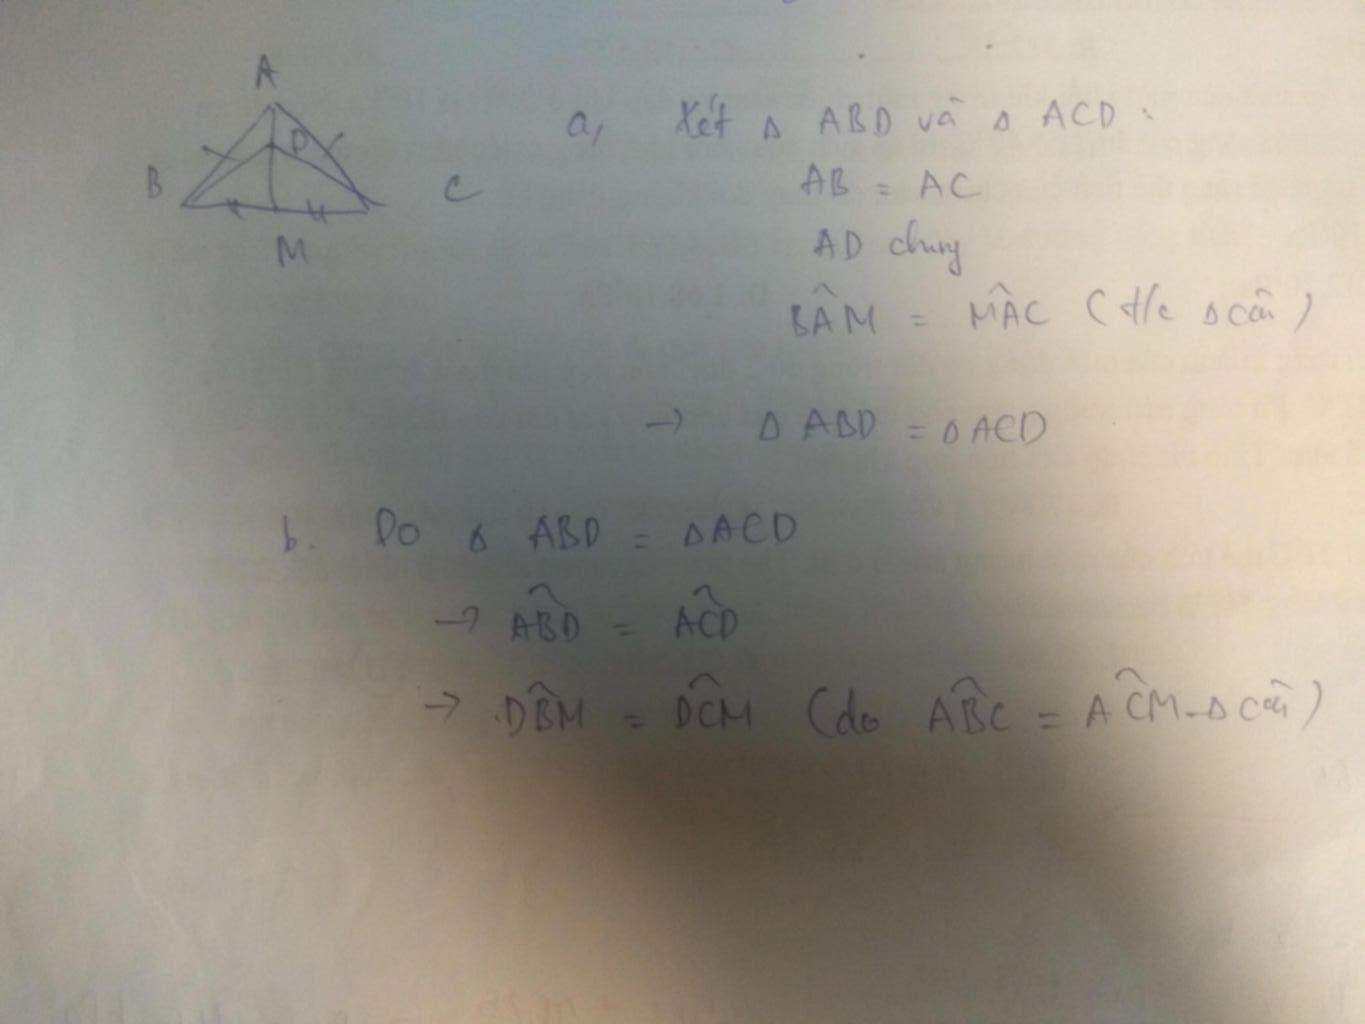 A
D
B
C
M
a, Xét Δ ABD và Δ ACD:
AB = AC
AD chung
BÂM = MÂC (t/c Δ cân)
→ Δ ABD = Δ ACD
b. Do Δ ABD = Δ ACD
→ AB̂D = AĈD
→ DB̂M = DĈM (do AB̂C = AĈM - Δ cân)